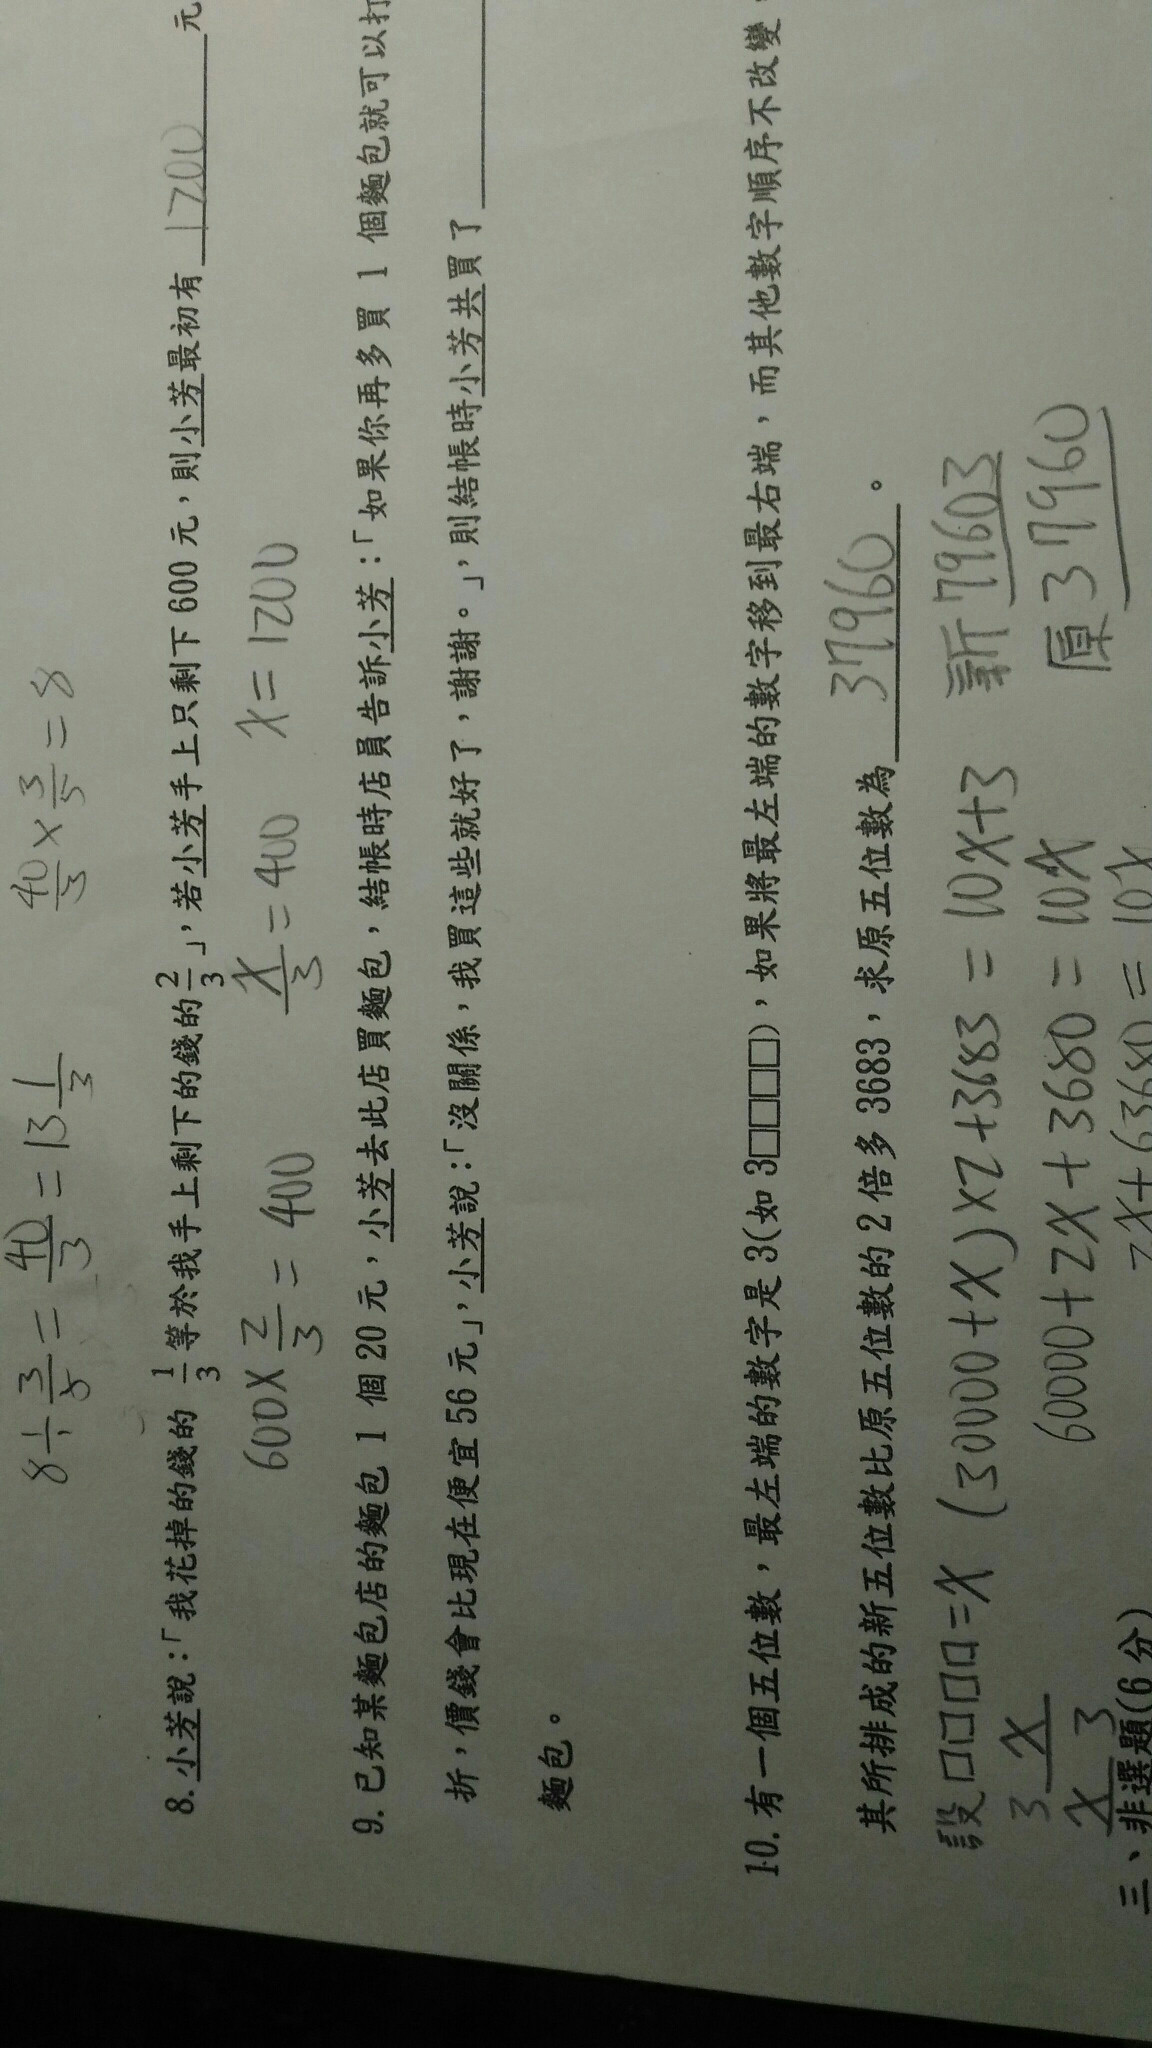 8÷3/5=40/3=13 1/3 40/3×3/5=8
8.小芳說:「我花掉的錢的1/3等於我手上剩下的錢的2/3」,若小芳手上只剩下600元,則小芳最初有 1200 元
600×2/3=400 x/3=400 x=1200
9.已知某麵包店的麵包1個20元,小芳去此店買麵包,結帳時店員告訴小芳:「如果你再多買1個麵包就可以打
折,價錢會比現在便宜56元」,小芳說:「沒關係,我買這些就好了,謝謝。」,則結帳時小芳共買了
麵包。
10.有一個五位數,最左端的數字是3(如3□□□□),如果將最左端的數字移到最右端,而其他數字順序不改變,
其所排成的新五位數比原五位數的2倍多3683,求原五位數為 37960 。
設□□□□=x (30000+x)×2+3683=10x+3 新79603
3 x 60000+2x+3680=10x 原37960
x 3 2x+63680=10x
三、非選題(6分)